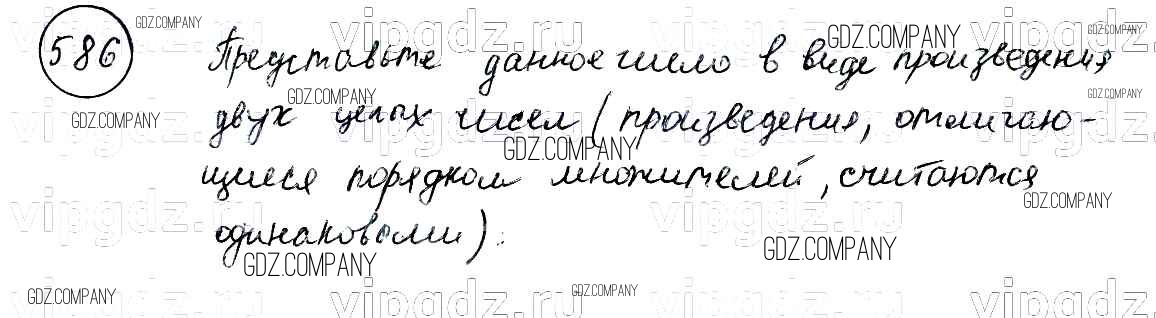 586 Представьте данное число в виде произведения
двух целых чисел (произведения, отличаю-
щиеся порядком множителей, считаются
одинаковыми):
vipgdz.ru
GDZ.COMPANY